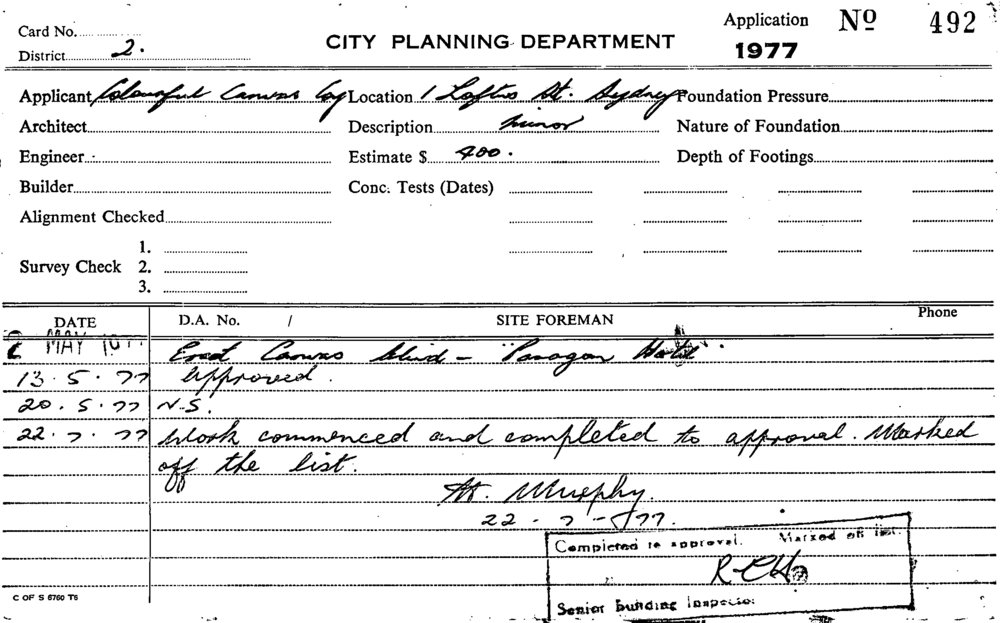 Card No.
Application No 492
District 2.
CITY PLANNING DEPARTMENT
1977
Applicant Colourful Canvas Coy Location 1 Loftus St. Sydney Foundation Pressure
Architect Description minor Nature of Foundation
Engineer Estimate $ 400. Depth of Footings
Builder Conc. Tests (Dates)
Alignment Checked
1.
Survey Check 2.
3.
DATE D.A. No. / SITE FOREMAN Phone
MAY Erect Canvas blind - "Paragon Hotel".
13.5.77 Approved.
20.5.77 N.S.
22.7.77 Work commenced and completed to approval. Marked
off the list.
Murphy.
22-7-77.
Completed to approval. Marked off list.
Senior Building Inspector
C OF S 6760 T6